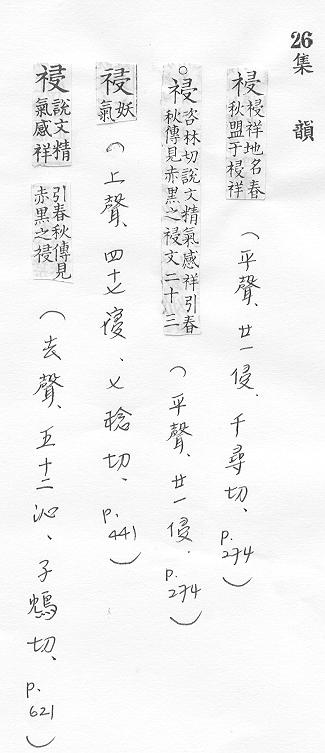 26
集韻
祲 祲祥地名春秋盟于祲祥（平聲、廿一侵、千尋切、p.274）
○祲 咨林切說文精氣感祥引春秋傳見赤黑之祲文二十三（平聲、廿一侵、p.274）
祲 妖氣（上聲、四十七寑、乂稔切、p.441）
祲 說文精氣感祥引春秋傳見赤黑之祲（去聲、五十二沁、子鴆切、p.621）